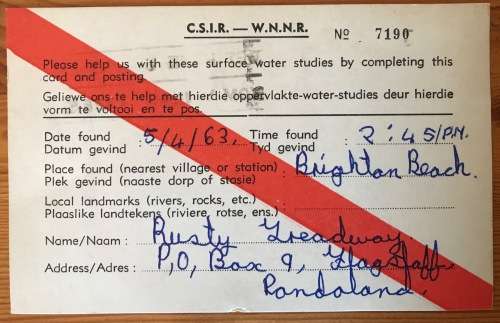 C.S.I.R. — W.N.N.R. No 7190
Please help us with these surface water studies by completing this
card and posting.
Geliewe ons te help met hierdie oppervlakte-water-studies deur hierdie
vorm te voltooi en te pos.
Date found : 5/4/63. Time found : 2:45/P.M.
Datum gevind Tyd gevind
Place found (nearest village or station) : Brighton Beach.
Plek gevind (naaste dorp of stasie)
Local landmarks (rivers, rocks, etc.) :
Plaaslike landtekens (riviere, rotse, ens.)
Name/Naam : Rusty Treadway
Address/Adres : P.O, Box 9, Flagstaff.
Pondoland.